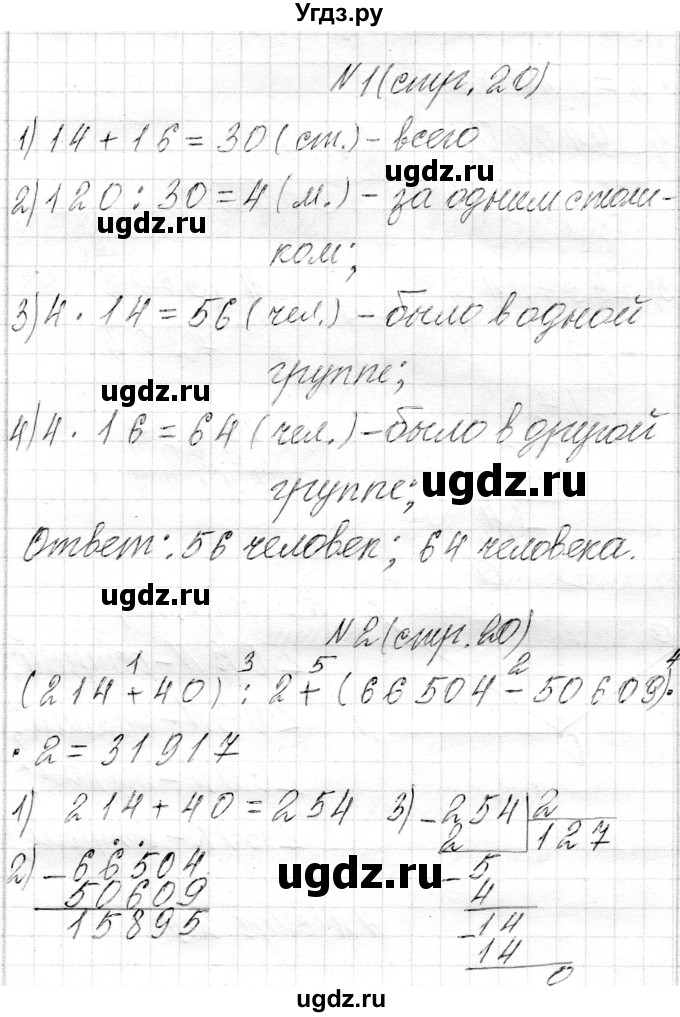 Угдз.ру
№1(стр. 20)
1) 14 + 16 = 30 (ст.) - всего
ugdz.ru
2) 120 : 30 = 4 (м.) - за одним столи-
ugdz.ru
ком;
3) 4 · 14 = 56 (чел.) - было в одной
группе;
ugdz.ru
4) 4 · 16 = 64 (чел.) - было в другой
группе;
ugdz.ru
Ответ: 56 человек; 64 человека.
ugdz.ru
№2(стр. 20)
1 3 5 2 4
(214 + 40) : 2 + (66504 - 50609) ·
· 2 = 31917
1) 214 + 40 = 254 3) - 254 | 2
2 127
2) - 66504
50609
15895
- 5
4
- 14
14
0
ugdz.ru
ugdz.ru
ugdz.ru